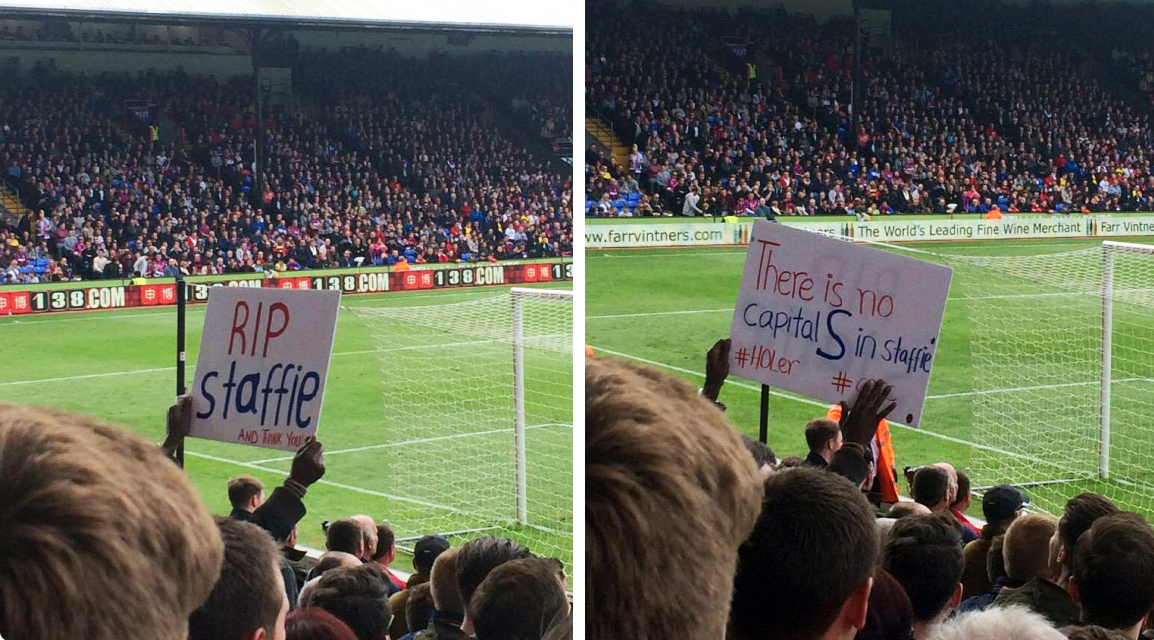 138.COM 申博 138.COM 申博 138.COM 申博 13
RIP
staffie
AND THANK YOU
www.farrvintners.com
The World's Leading Fine Wine Merchant
Farr Vintne
There is no
capital S in staffie
#HOLer
#